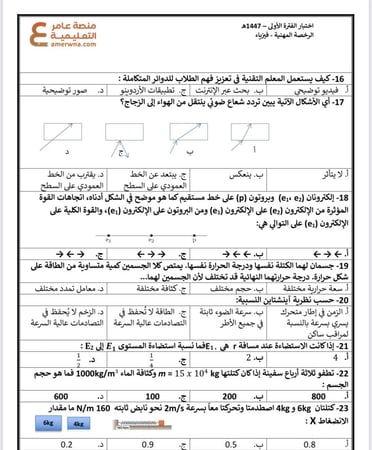 منصة عامر
التعليمية
amerwna.com
اختبار الفترة الأولى – 1447هـ
الرخصة المهنية - فيزياء
16- كيف يستعمل المعلم التقنية في تعزيز فهم الطلاب للدوائر المتكاملة :
أ. فيديو توضيحي ب. بحث عبر الإنترنت ج. تطبيقات الأردوينو د. صور توضيحية
17- أي الأشكال الآتية يبين تردد شعاع ضوئي ينتقل من الهواء إلى الزجاج؟
أ ب ج د
أ. لا يتأثر ب. ينعكس ج. يبتعد عن الخط العمودي على السطح د. يقترب من الخط العمودي على السطح
18- إلكترونان (e₁, e₂) وبروتون (p) على خط مستقيم كما هو موضح في الشكل أدناه، اتجاهات القوة
المؤثرة من الإلكترون (e₂) على الإلكترون (e₁) ومن البروتون على الإلكترون (e₁)، والقوة الكلية على
الإلكترون (e₁) على التوالي هي:
e₁ e₂ p
19- جسمان لهما الكتلة نفسها ودرجة الحرارة نفسها. يمتص كلا الجسمين كمية متساوية من الطاقة على
شكل حرارة. درجة حرارتهما النهائية قد تختلف لأن الجسمين لهما...
أ. سعة حرارية مختلفة ب. حجم مختلف ج. كثافة مختلفة د. معامل تمدد مختلف
20- حسب نظرية آينشتاين النسبية:
أ. الزمن في إطار متحرك يسري بسرعة بالنسبة لمراقب ساكن ب. سرعة الضوء ثابتة في جميع الأطر ج. الطاقة لا تُحفظ في التصادمات عالية السرعة د. الزخم لا يُحفظ في التصادمات عالية السرعة
21- إذا كانت الاستضاءة عند مسافة r هي E₁، فما نسبة استضاءة المستوى E₁ إلى E₂ :
أ. 4 ب. 2 ج. 1/4 د. 1/2
22- تطفو ثلاثة أرباع سفينة إذا كان كتلتها m = 15 x 10⁴ kg وكثافة الماء 1000kg/m³ فما هو حجم
الجسم :
أ. 800 ب. 200 ج. 100 د. 600
23- كتلتان 6kg و 4kg اصطدمتا وتحركتا معاً بسرعة 2m/s نحو نابض ثابته 160 N/m ما مقدار
الانضغاط X :
6kg 4kg
أ. 0.8 ب. 0.5 ج. 0.9 د. 0.2